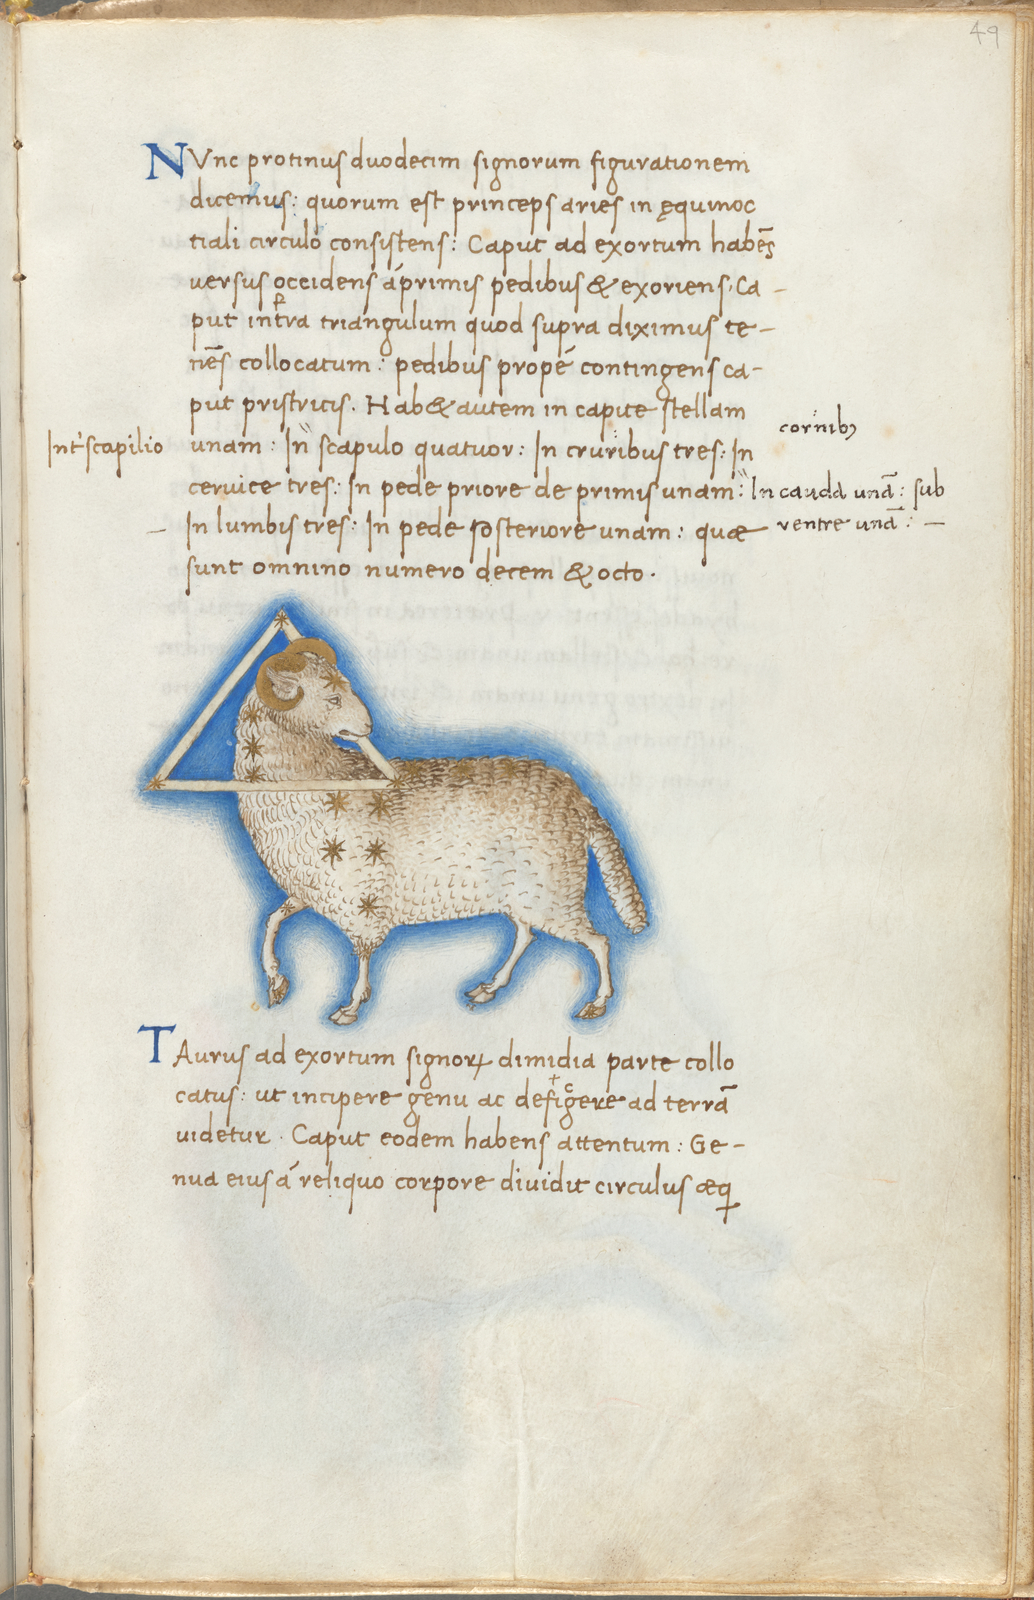 49
NVnc protinus duodecim signorum figurationem
dicemus: quorum est princeps aries in ęquinoc
tiali circulo consistens: Caput ad exortum habēs
uersus occidens áprimis pedibus & exoriens. Ca-
put intra triangulum quod supra diximus te-
nēs collocatum: pedibus propé contingens ca-
put pristricis. Hab& autem in capite stellam
cornib9
Int'scapilio unam: In scapulo quatuor: In cruribus tres: In
ceruice tres: In pede priore de primis unam: In cauda unā: sub
In lumbis tres: In pede posteriore unam: quæ ventre unā: —
sunt omnino numero decem & octo.
TAurus ad exortum signoꝝ dimidia parte collo
catus: ut incipere genu ac defigere ad terrā
uidetur. Caput eodem habens attentum: Ge-
nua eius á reliquo corpore diuidit circulus æq